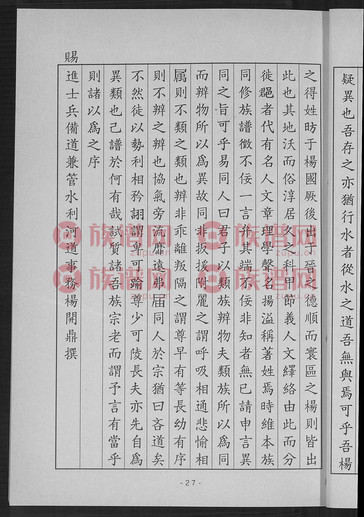 疑異也吾存之亦猶行水者從水之道吾無與焉可乎吾楊
之得姓昉于楊國厥後出于晉之德順而寰區之楊則皆出
此也其地沃而俗淳居久之科甲節義人文繹絡由此而分
徙邑者代有名人文章理學聲名揚溢稱著姓焉時維本族
同修族譜徵不佞一言弁其端不佞非知者無已請申言異
同之旨可乎易同人曰君子以類族辨物夫類族所以為同
而辨物所以為異故同非扳援附麗之謂呼吸相通悲愉相
属則不類之類也辨非乖離叛隔之謂尊早有等長幼有序
則不辨之辨也協氣旁流靡遠弗届同人於宗猶曰吝道矣
不然徒以勢利相矜詡謂卑可踰尊少可陵長夫亦先自
異類也己譜於何有哉試質諸吾族宗老而謂予言有當乎
則諸以為之序
賜
進士兵備道兼管水利河道事務楊開鼎撰
-27-
族譜网